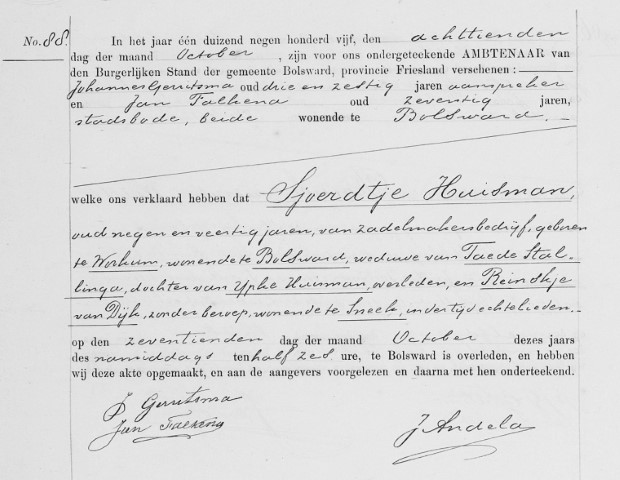 No. 88. In het jaar één duizend negen honderd vijf, den achttienden
dag der maand October, zijn voor ons ondergeteekende AMBTENAAR van
den Burgerlijken Stand der gemeente Bolsward, provincie Friesland verschenen:
Johannes Gerritsma oud drie en zestig jaren, aanspreker
en Jan Falkena oud zeventig jaren,
stadsbode, beide wonende te Bolsward.
welke ons verklaard hebben dat Sjoerdtje Huisman,
oud negen en veertig jaren, van zadelmakersbedrijf, geboren
te Workum, wonende te Bolsward, weduwe van Taede Stal-
linga, dochter van Ypke Huisman, overleden, en Reinskje
van Dijk, zonder beroep, wonende te Sneek, in der tijd echtelieden.
op den zeventienden dag der maand October dezes jaars
des namiddags ten half zes ure, te Bolsward is overleden, en hebben
wij deze akte opgemaakt, en aan de aangevers voorgelezen en daarna met hen onderteekend.
J Gerritsma
Jan Falkena
J Andela